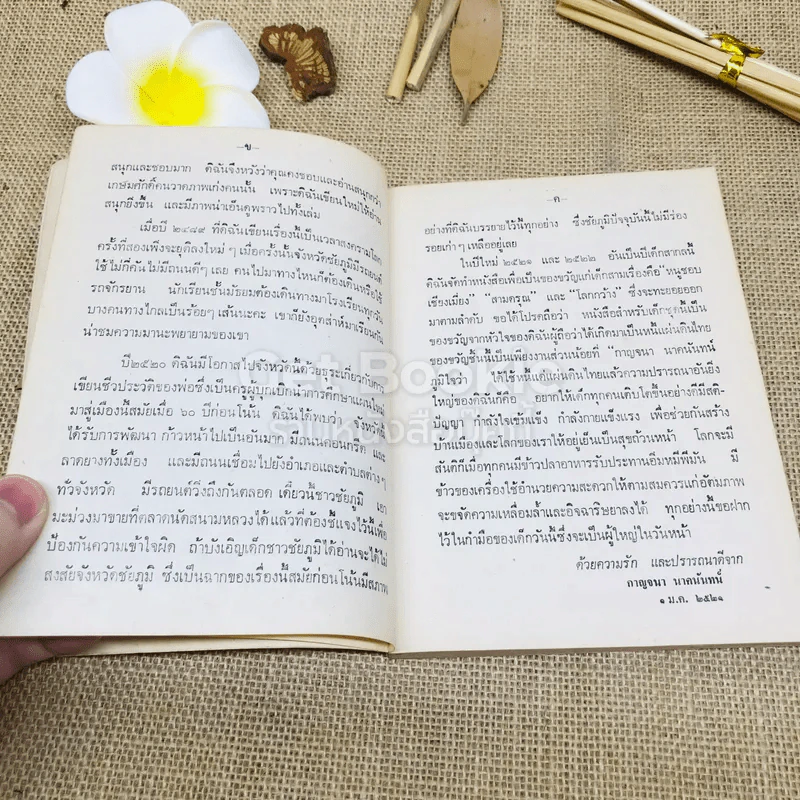 —ข—
สนุกและชอบมาก ดิฉันจึงหวังว่าคุณคงชอบและอ่านสนุกกว่า
เกษมศักดิ์คนวาดภาพเก่งคนนั้น เพราะดิฉันเขียนใหม่ให้อ่าน
สนุกยิ่งขึ้น และมีภาพน่าเอ็นดูพราวไปทั้งเล่ม
เมื่อปี ๒๔๘๙ ที่ดิฉันเขียนเรื่องนี้เป็นเวลาสงครามโลก
ครั้งที่สองเพิ่งจะยุติลงใหม่ ๆ เมื่อครั้งนั้นจังหวัดชัยภูมิมีรถยนต์
ใช้ไม่กี่คันไม่มีถนนดีๆ เลย คนไปมาทางไหนก็ต้องเดินหรือใช้
รถจักรยาน นักเรียนชั้นมัธยมต้องเดินทางมาโรงเรียนทุกวัน
บางคนทางไกลเป็นร้อยๆ เส้นนะคะ เขาก็ยังอุตส่าห์มาเรียนกัน
น่าชมความมานะพยายามของเขา
ปี๒๕๒๐ ดิฉันมีโอกาสไปจังหวัดนี้ด้วยธุระเกี่ยวกับการ
เขียนชีวประวัติของพ่อซึ่งเป็นครูผู้บุกเบิกนำการศึกษาแผนใหม่
มาสู่เมืองนี้สมัยเมื่อ ๖๐ ปีก่อนโน้น ดิฉันได้พบว่า จังหวัด
ได้รับการพัฒนา ก้าวหน้าไปเป็นอันมาก มีถนนคอนกรีต และ
ลาดยางทั้งเมือง และมีถนนเชื่อมไปยังอำเภอและตำบลต่างๆ
ทั่วจังหวัด มีรถยนต์วิ่งถึงกันตลอด เดี๋ยวนี้ชาวชัยภูมิ เอา
มะม่วงมาขายที่ตลาดนัดสนามหลวงได้แล้วที่ต้องชี้แจงไว้นี้เพื่อ
ป้องกันความเข้าใจผิด ถ้าบังเอิญเด็กชาวชัยภูมิได้อ่านจะได้ไม่
สงสัยจังหวัดชัยภูมิ ซึ่งเป็นฉากของเรื่องนี้สมัยก่อนโน้นมีสภาพ
—ค—
อย่างที่ดิฉันบรรยายไว้นี้ทุกอย่าง ซึ่งชัยภูมิปัจจุบันนี้ไม่มีร่อง
รอยเก่าๆ เหลืออยู่เลย
ในปีใหม่ ๒๕๒๑ และ ๒๕๒๒ อันเป็นปีเด็กสากลนี้
ดิฉันจัดทำหนังสือเพื่อเป็นของขวัญแก่เด็กสามเรื่องคือ“หนูชอบ
เชียงเมี่ยง” “สามดรุณ” และ“โลกกว้าง” ซึ่งจะทะยอยออก
มาตามลำดับ ขอได้โปรดถือว่า หนังสือสำหรับเด็กชุดนี้เป็น
ของขวัญจากหัวใจของดิฉันผู้ถือว่าได้เกิดมาเป็นหนี้แผ่นดินไทย
ของขวัญชิ้นนี้เป็นเพียงงานส่วนน้อยที่ “กาญจนา นาคนันทน์
ภูมิใจว่า ได้ใช้หนี้แก่แผ่นดินไทยแล้วความปรารถนาอันยิ่ง
ใหญ่ของดิฉันก็คือ อยากให้เด็กทุกคนเติบโตขึ้นอย่างดีมีสติ-
ปัญญา กำลังใจเข้มแข็ง กำลังกายแข็งแรง เพื่อช่วยกันสร้าง
บ้านเมืองและโลกของเราให้อยู่เย็นเป็นสุขถ้วนหน้า โลกจะมี
สันติดีก็เมื่อทุกคนมีข้าวปลาอาหารรับประทานอิ่มหมีพีมัน มี
ข้าวของเครื่องใช้อำนวยความสะดวกให้ตามสมควรแก่อัตมภาพ
จะขจัดความเหลื่อมล้ำและอิจฉาริษยาลงได้ ทุกอย่างนี้ขอฝาก
ไว้ในกำมือของเด็กวันนี้ซึ่งจะเป็นผู้ใหญ่ในวันหน้า
ด้วยความรัก และปรารถนาดีจาก
กาญจนา นาคนันทน์
๑ ม.ค. ๒๕๒๑